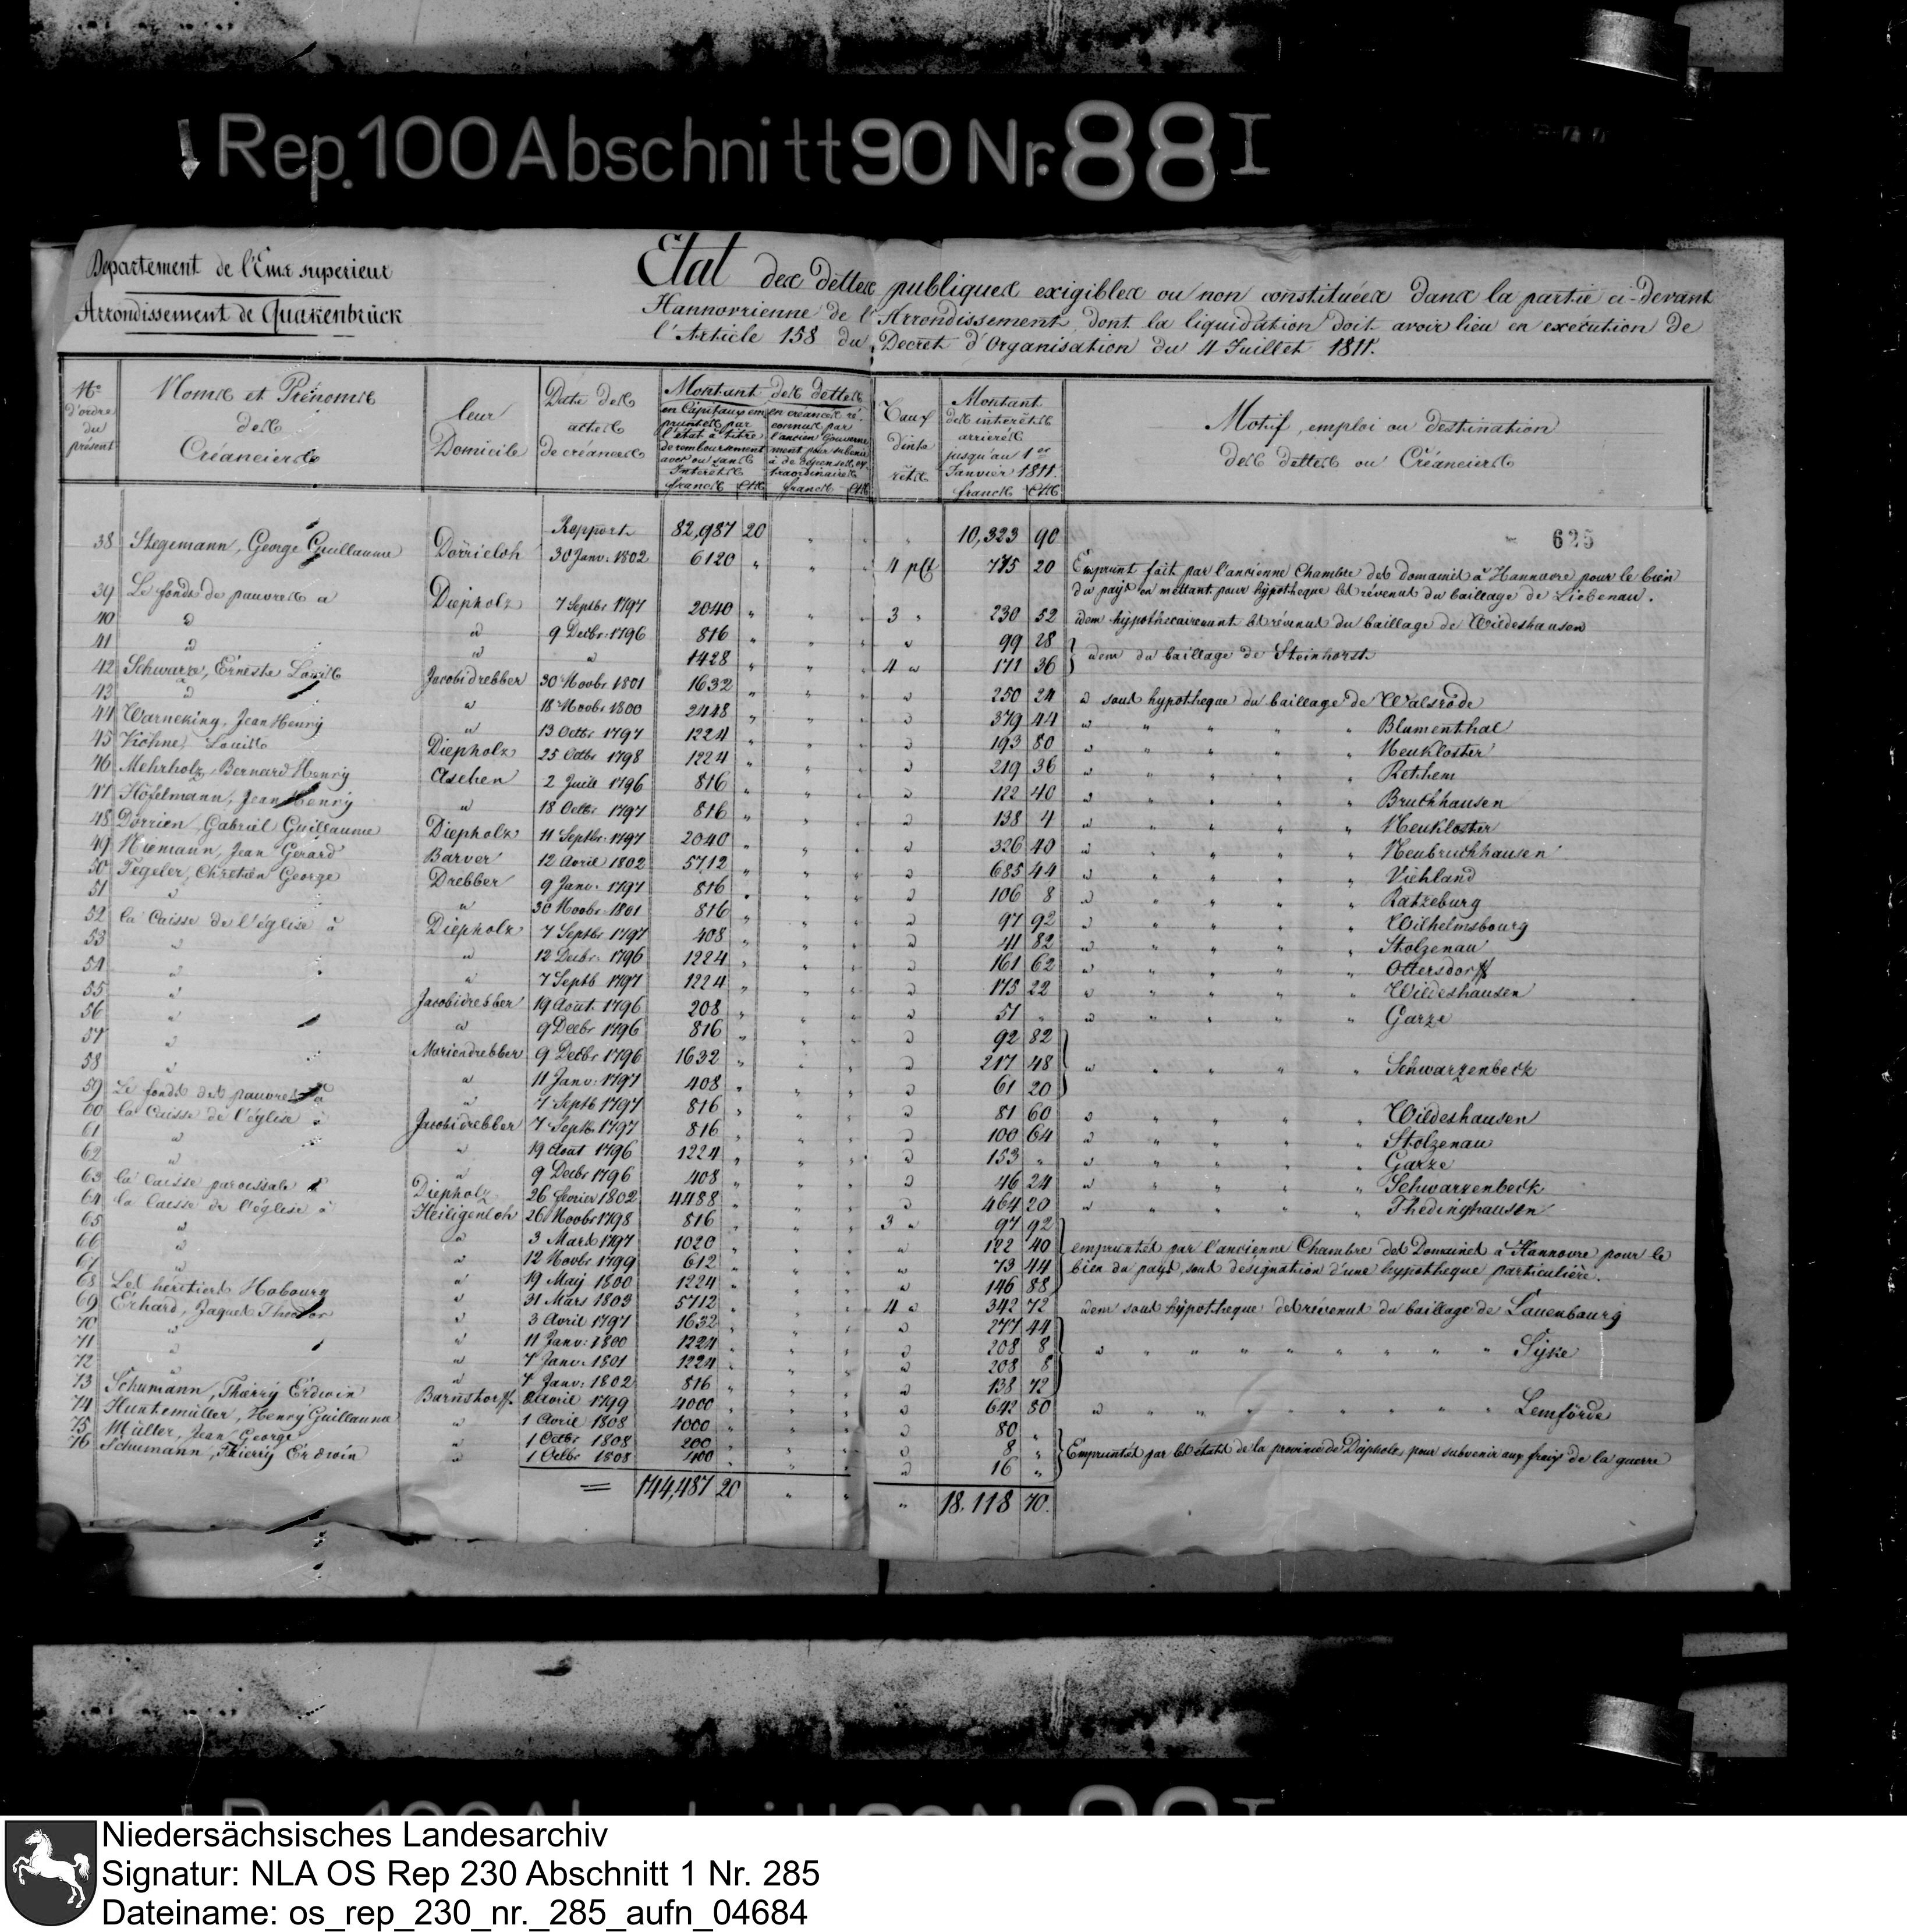 Rep. 100 Abschnitt 90 Nr. 88 I
Departement de l'Ems superieur
Arrondissement de Quakenbrück
Etat des dettes publiques exigibles ou non constituées dans la partie ci-devant
Hannovrienne de l'Arrondissement, dont la liquidation doit avoir lieu en exécution de
l'Article 158 du Decret d'Organisation du 4 Juillet 1811.
No d'ordre du présent
Noms et Prénoms des Créanciers
leur Domicile
Date des actes de créances
Montant des dettes
en Capitaux empruntés par l'état à titre de remboursement avec ou sans Intérêts
francs cts
en créances reconnus par l'ancien Gouvernement pour subvenir à de dépenses extraordinaires
francs cts
Taux d'intérêts
Montant des interêts arrierés jusqu'au 1er Janvier 1811.
francs cts
Motif, emploi ou destination des dettes ou Créanciers
625
Report 82,987 20 " " " 10,323 90
38 Stegemann, George Guillaume Dörrieloh 30 Janv. 1802 6120 " " " 4 pct 775 20 Emprunt fait par l'ancienne Chambre des Domaines à Hannovre pour le bien
du pays en mettant pour hypotheque les révenus du baillage de Liebenau.
39 Le fonds de pauvres a Diepholz 7 Septbr 1797 2040 " " " 3 " 230 52 idem hypothecairement les révenus du baillage de Wildeshausen
40 " " 9 Decbr. 1796 816 " " " " 99 28
41 " " " 1428 " " " 4 " 171 36 idem du baillage de Steinhorst
42 Schwarze, Erneste Louis Jacobidrebber 30 Novbr 1801 1632 " " " " 250 24 " sous hypotheque du baillage de Walsrode
43 " " 18 Novbr 1800 2448 " " " " 379 44 " " " " " Blumenthal
44 Warneking, Jean Henry " 13 Octbr 1797 1224 " " " " 193 80 " " " " " Neukloster
45 Kohne, Louis Diepholz 25 Octbr 1798 1224 " " " " 219 36 " " " " " Rethem
46 Mehrholz, Bernard Henry Aschen 2 Juill 1796 816 " " " " 122 40 " " " " " Bruchhausen
47 Höfelmann, Jean Henry " 18 Octbr 1797 816 " " " " 138 4 " " " " " Neukloster
48 Dörrien, Gabriel Guillaume Diepholz 11 Septbr. 1797 2040 " " " " 326 40 " " " " " Neubruchhausen
49 Niemann, Jean Gerard Barver 12 Avril 1802 5712 " " " " 685 44 " " " " " Viehland
50 Tegeler, Chretien George Drebber 9 Janv. 1797 816 " " " " 106 8 " " " " " Ratzeburg
51 " " 30 Novbr. 1801 816 " " " " 97 92 " " " " " Wilhelmsbourg
52 la Caisse de l'église à Diepholz 7 Septbr 1797 408 " " " " 41 82 " " " " " Stolzenau
53 " " 12 Decbr. 1796 1224 " " " " 161 62 " " " " " Ottersdorff
54 " " 7 Septb 1797 1224 " " " " 173 22 " " " " " Wildeshausen
55 " Jacobidrebber 19 Aout. 1796 208 " " " " 51 " " " " " " Garze
56 " " 9 Decbr 1796 816 " " " " 92 82
57 " Mariendrebber 9 Decbr 1796 1632 " " " " 217 48 " " " " " Schwarzenbeck
58 " " 11 Janv. 1797 408 " " " " 61 20
59 Le fonds des pauvres à " 7 Septb 1797 816 " " " " 81 60 " " " " " Wildeshausen
60 la Caisse de l'église à Jacobidrebber 7 Septb. 1797 816 " " " " 100 64 " " " " " Stolzenau
61 " " 19 Aout 1796 1224 " " " " 153 " " " " " " Garze
62 " " 9 Decbr 1796 408 " " " " 46 24 " " " " " Schwarzenbeck
63 la Caisse paroissale à Diepholz 26 Fevrier 1802 4488 " " " " 464 20 " " " " " Thedinghausen
64 la Caisse de l'église à Heiligenloh 26 Novbr 1798 816 " " " 3 " 97 92
65 " " 3 Mars 1797 1020 " " " " 122 40 empruntés par l'ancienne Chambre des Domaines a Hannovre pour le
66 " " 12 Novbr 1799 612 " " " " 73 44 bien du pays, sous designation d'une hypotheque particulière.
67 " " 19 Maij 1800 1224 " " " " 146 88
68 Les héritiers Hobourg " 31 Mars 1803 5712 " " " 4 " 342 72 idem sous hypotheque des révenus du baillage de Lauenbourg
69 Erhard, Jaques Theodor " 3 Avril 1797 1632 " " " " 277 44
70 " " 11 Janv: 1800 1224 " " " " 208 8 " " " " " " " " " Syke
71 " " 7 Janv. 1801 1224 " " " " 208 8
72 " " 7 Janv: 1802 816 " " " " 138 72
73 Schumann, Thierry Erdwin Barnstorff Avril 1799 4000 " " " " 642 80 " " " " " " " " " Lemförde
74 Huntemüller, Henry Guillaume " 1 Avril 1808 1000 " " " " 80 "
75 Müller, Jean George " 1 Octbr 1808 200 " " " " 8 " Empruntés par les états de la province de Diepholz, pour subvenir aux frais de la guerre
76 Schumann, Thierry Erdwin " 1 Octbr 1808 400 " " " " 16 "
= 144,487 20 " " " 18.118 70.
Niedersächsisches Landesarchiv
Signatur: NLA OS Rep 230 Abschnitt 1 Nr. 285
Dateiname: os_rep_230_nr._285_aufn_04684